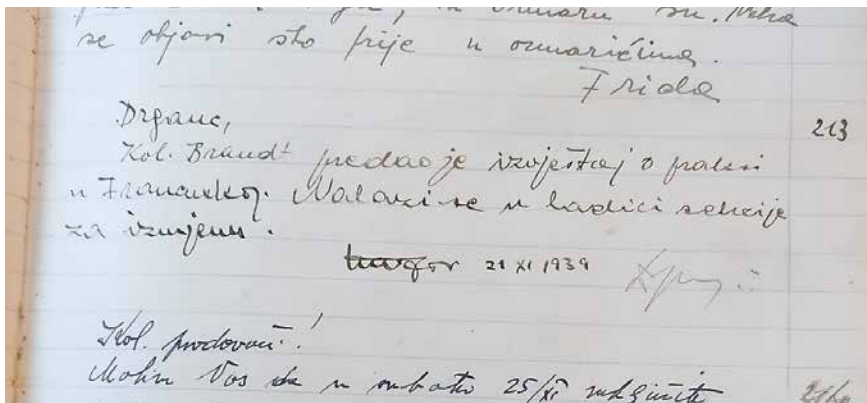 se objavi što prije u ormarićima.
Frida
213
Drgane,
Kol. Brandt predao je izvještaj o praksi
u Francuskoj. Nalazi se u ladici sekcije
za izmjenu.
21 XI 1939
Kol.
Molim Vas da u subotu 25/XI